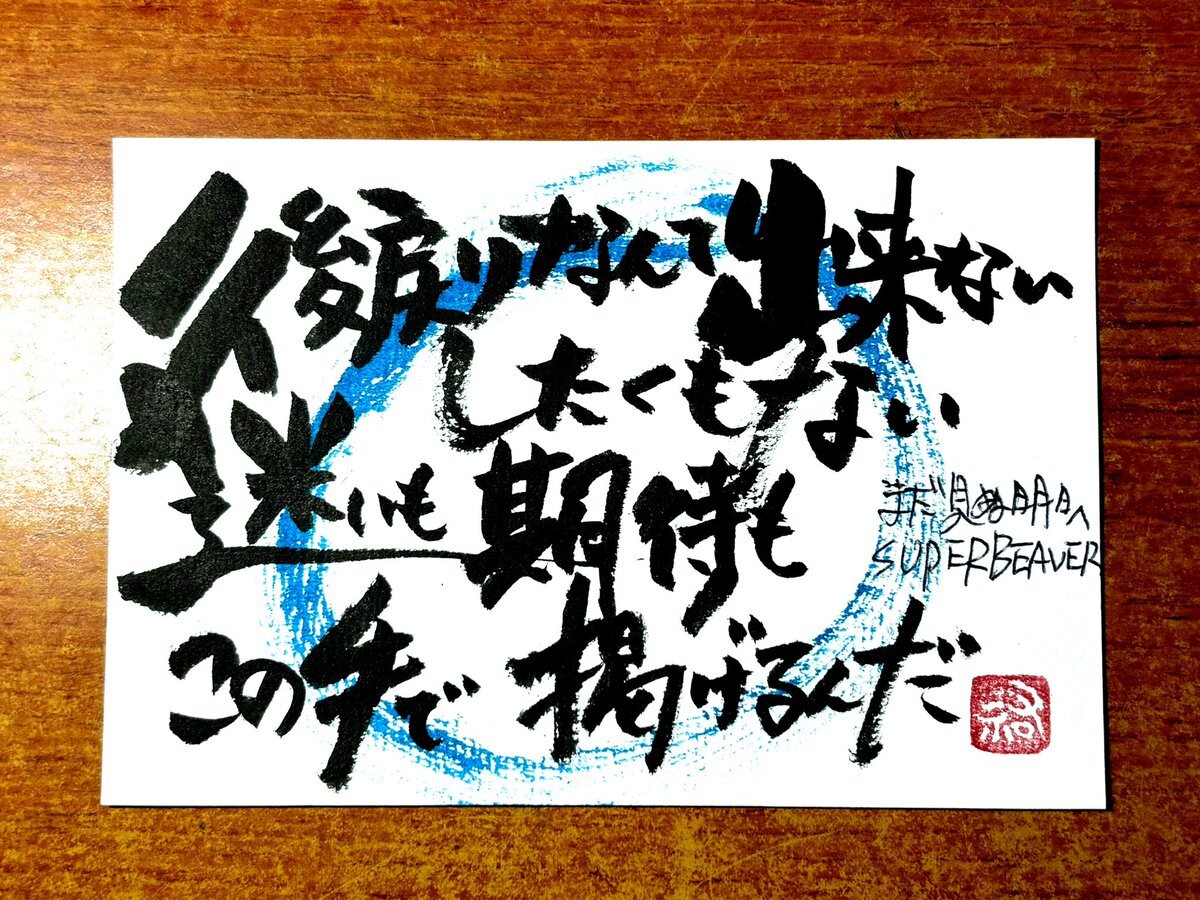 後戻りなんて出来ない
したくもない
迷いも期待も
この手で掲げるんだ
まだ見ぬ明日へ
SUPER BEAVER